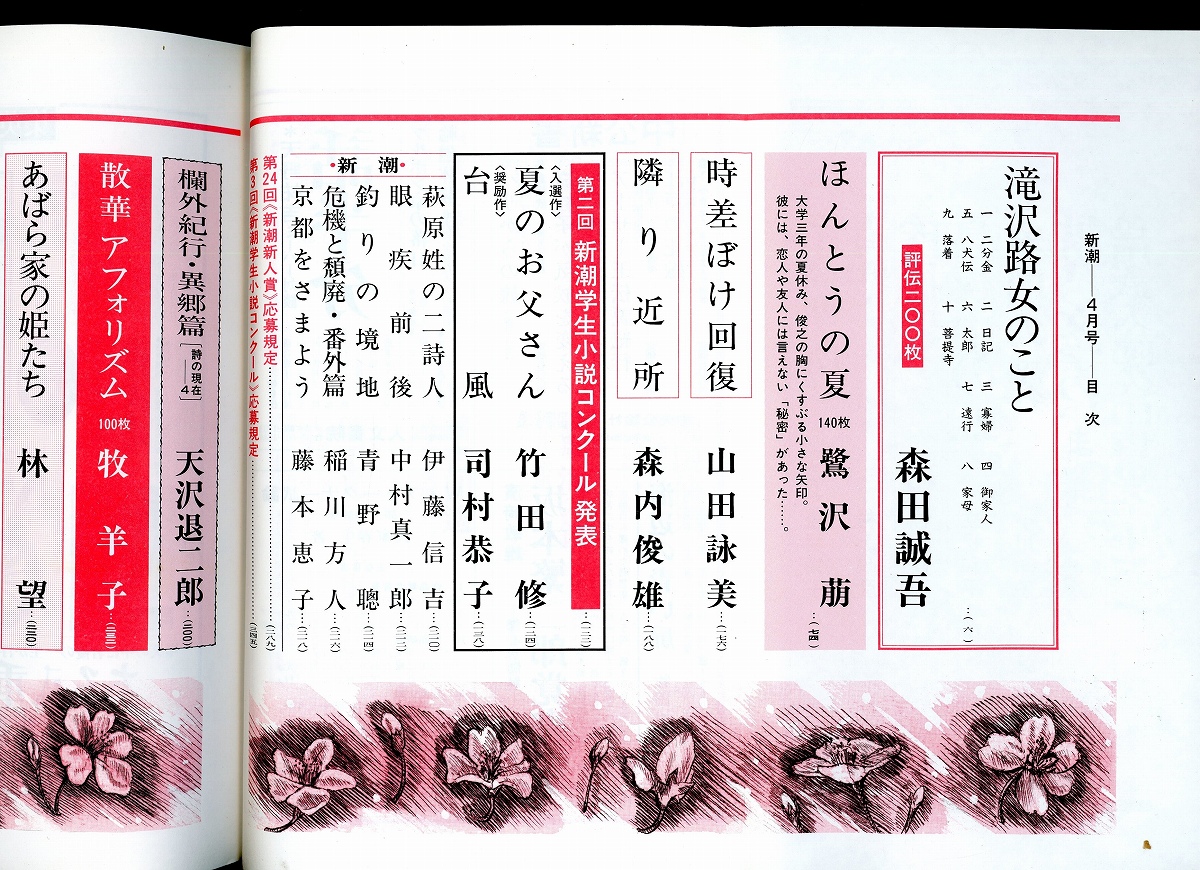 新潮――4月号――目 次
滝沢路女のこと
一 二分金 二 日記 三 寡婦 四 御家人
五 八犬伝 六 太郎 七 遠行 八 家母
九 落着 十 菩提寺
評伝二〇〇枚
森田誠吾…(六)
ほんとうの夏 140枚 鷺沢 萠
大学三年の夏休み、俊之の胸にくすぶる小さな矢印。
彼には、恋人や友人には言えない「秘密」があった……。
時差ぼけ回復 山田詠美…(一七六)
隣り近所 森内俊雄…(一八八)
第二回 新潮学生小説コンクール 発表…(一二二)
〈入選作〉
夏のお父さん 竹田 修…(一二四)
〈奨励作〉
台風 司村恭子…(一三八)
・新潮・
萩原姓の二詩人 伊藤信吉…(二一〇)
眼疾前後 中村真一郎…(二一二)
釣りの境地 青野 聰…(二一四)
危機と頽廃・番外篇 稲川方人…(二一六)
京都をさまよう 藤本恵子…(二一八)
第24回《新潮新人賞》応募規定…(一八九)
第3回《新潮学生小説コンクール》応募規定…(三四五)
欄外紀行・異郷篇 [詩の現在――4] 天沢退二郎…(二〇〇)
散華 アフォリズム 100枚 牧 羊子…(二三二)
あばら家の姫たち 林 望…(二二〇)